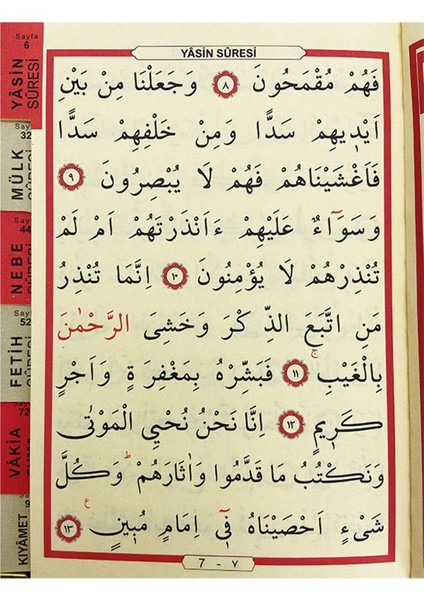 YÂSİN SÛRESİ
فَهُمْ مُقْمَحُونَ ﴿٨﴾ وَجَعَلْنَا مِنْ بَيْنِ
اَيْدٖيهِمْ سَدًّا وَمِنْ خَلْفِهِمْ سَدًّا
فَاَغْشَيْنَاهُمْ فَهُمْ لَا يُبْصِرُونَ ﴿٩﴾
وَسَوَٓاءٌ عَلَيْهِمْ ءَاَنْذَرْتَهُمْ اَمْ لَمْ
تُنْذِرْهُمْ لَا يُؤْمِنُونَ ﴿١٠﴾ اِنَّمَا تُنْذِرُ
مَنِ اتَّبَعَ الذِّكْرَ وَخَشِيَ الرَّحْمٰنَ
بِالْغَيْبِۚ ﴿١١﴾ فَبَشِّرْهُ بِمَغْفِرَةٍ وَاَجْرٍ
كَرٖيمٍ ﴿١٢﴾ اِنَّا نَحْنُ نُحْيِي الْمَوْتٰى
وَنَكْتُبُ مَا قَدَّمُوا وَاٰثَارَهُمْۜ وَكُلَّ
شَيْءٍ اَحْصَيْنَاهُ فٖٓي اِمَامٍ مُبٖينٍ ﴿١٣﴾ ع
7 - ٧
Sayfa
6
YÂSİN
SÛRESİ
32
MÜLK
SÛRESİ
44
NEBE
SÛRESİ
52
FETİH
SÛRESİ
72
VÂKIA
9
KIYÂMET